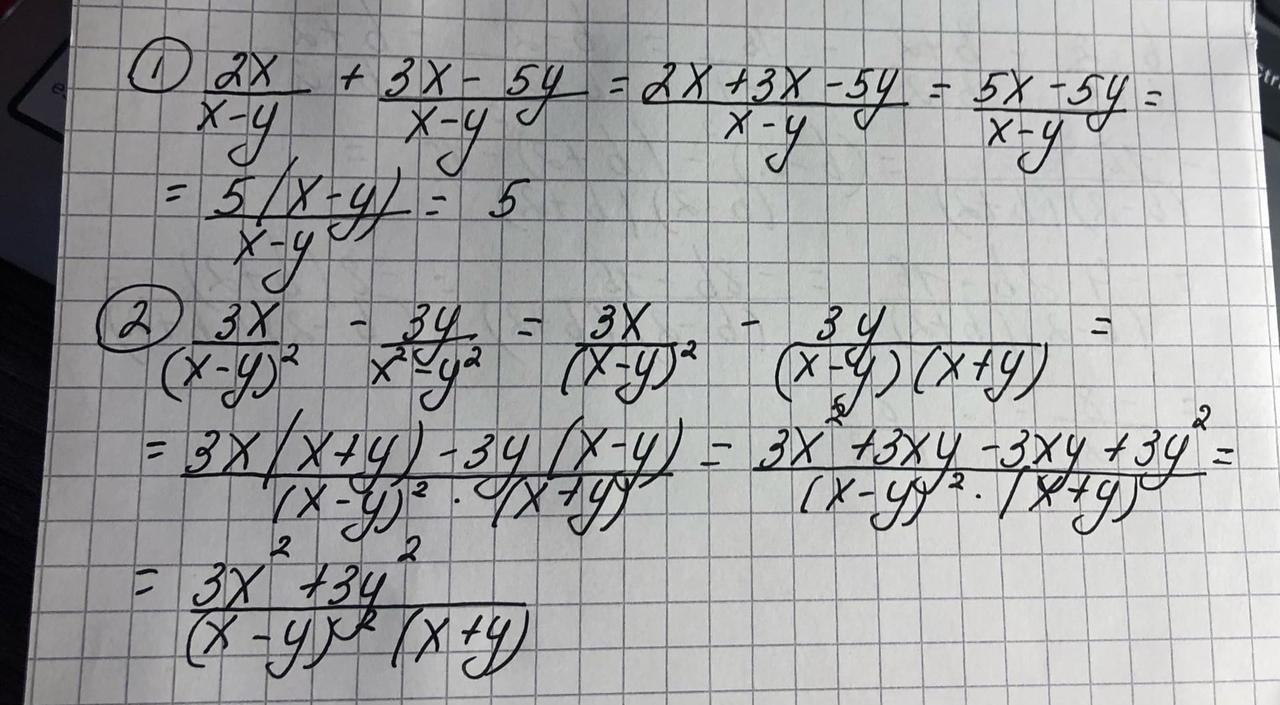 ① 2x/(x-y) + (3x - 5y)/(x-y) = (2x + 3x - 5y)/(x-y) = (5x - 5y)/(x-y) =
= 5(x-y)/(x-y) = 5
② 3x/(x-y)² - 3y/(x²-y²) = 3x/(x-y)² - 3y/((x-y)(x+y)) =
= (3x(x+y) - 3y(x-y))/((x-y)² · (x+y)) = (3x² + 3xy - 3xy + 3y²)/((x-y)² · (x+y)) =
= (3x² + 3y²)/((x-y)² (x+y))